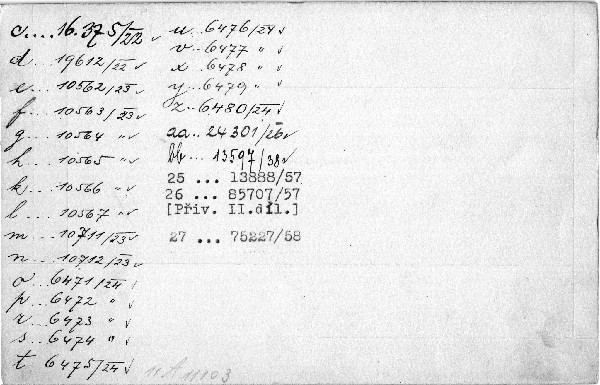 c....16.375/22 ✓
d...19612/22 ✓
e...10562/23 ✓
f...10563/23 ✓
g...10564 " ✓
h...10565 " ✓
k...10566 " ✓
l...10567 " ✓
m...10711/23 ✓
n...10712/23 ✓
o...6471/24 ✓
p...6472 " ✓
r...6473 " ✓
s...6474 " ✓
t 6475/24 ✓
u..6476/24 ✓
v..6477 " ✓
x..6478 " ✓
y..6479 " ✓
z..6480/24 ✓
aa..24301/26 ✓
bb...13597/38 ✓
25 ... 13888/57
26 ... 85707/57
[Přiv. II.díl.]
27 ... 75227/58
11 A 11103